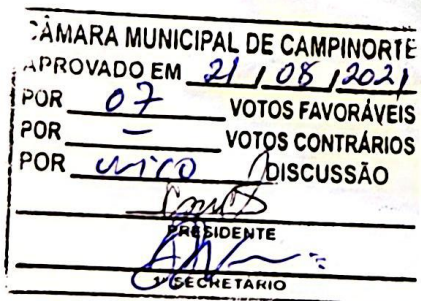 CÂMARA MUNICIPAL DE CAMPINORTE
APROVADO EM 21 / 08 / 2021
POR 07 VOTOS FAVORÁVEIS
POR — VOTOS CONTRÁRIOS
POR unico DISCUSSÃO
PRESIDENTE
1º SECRETARIO